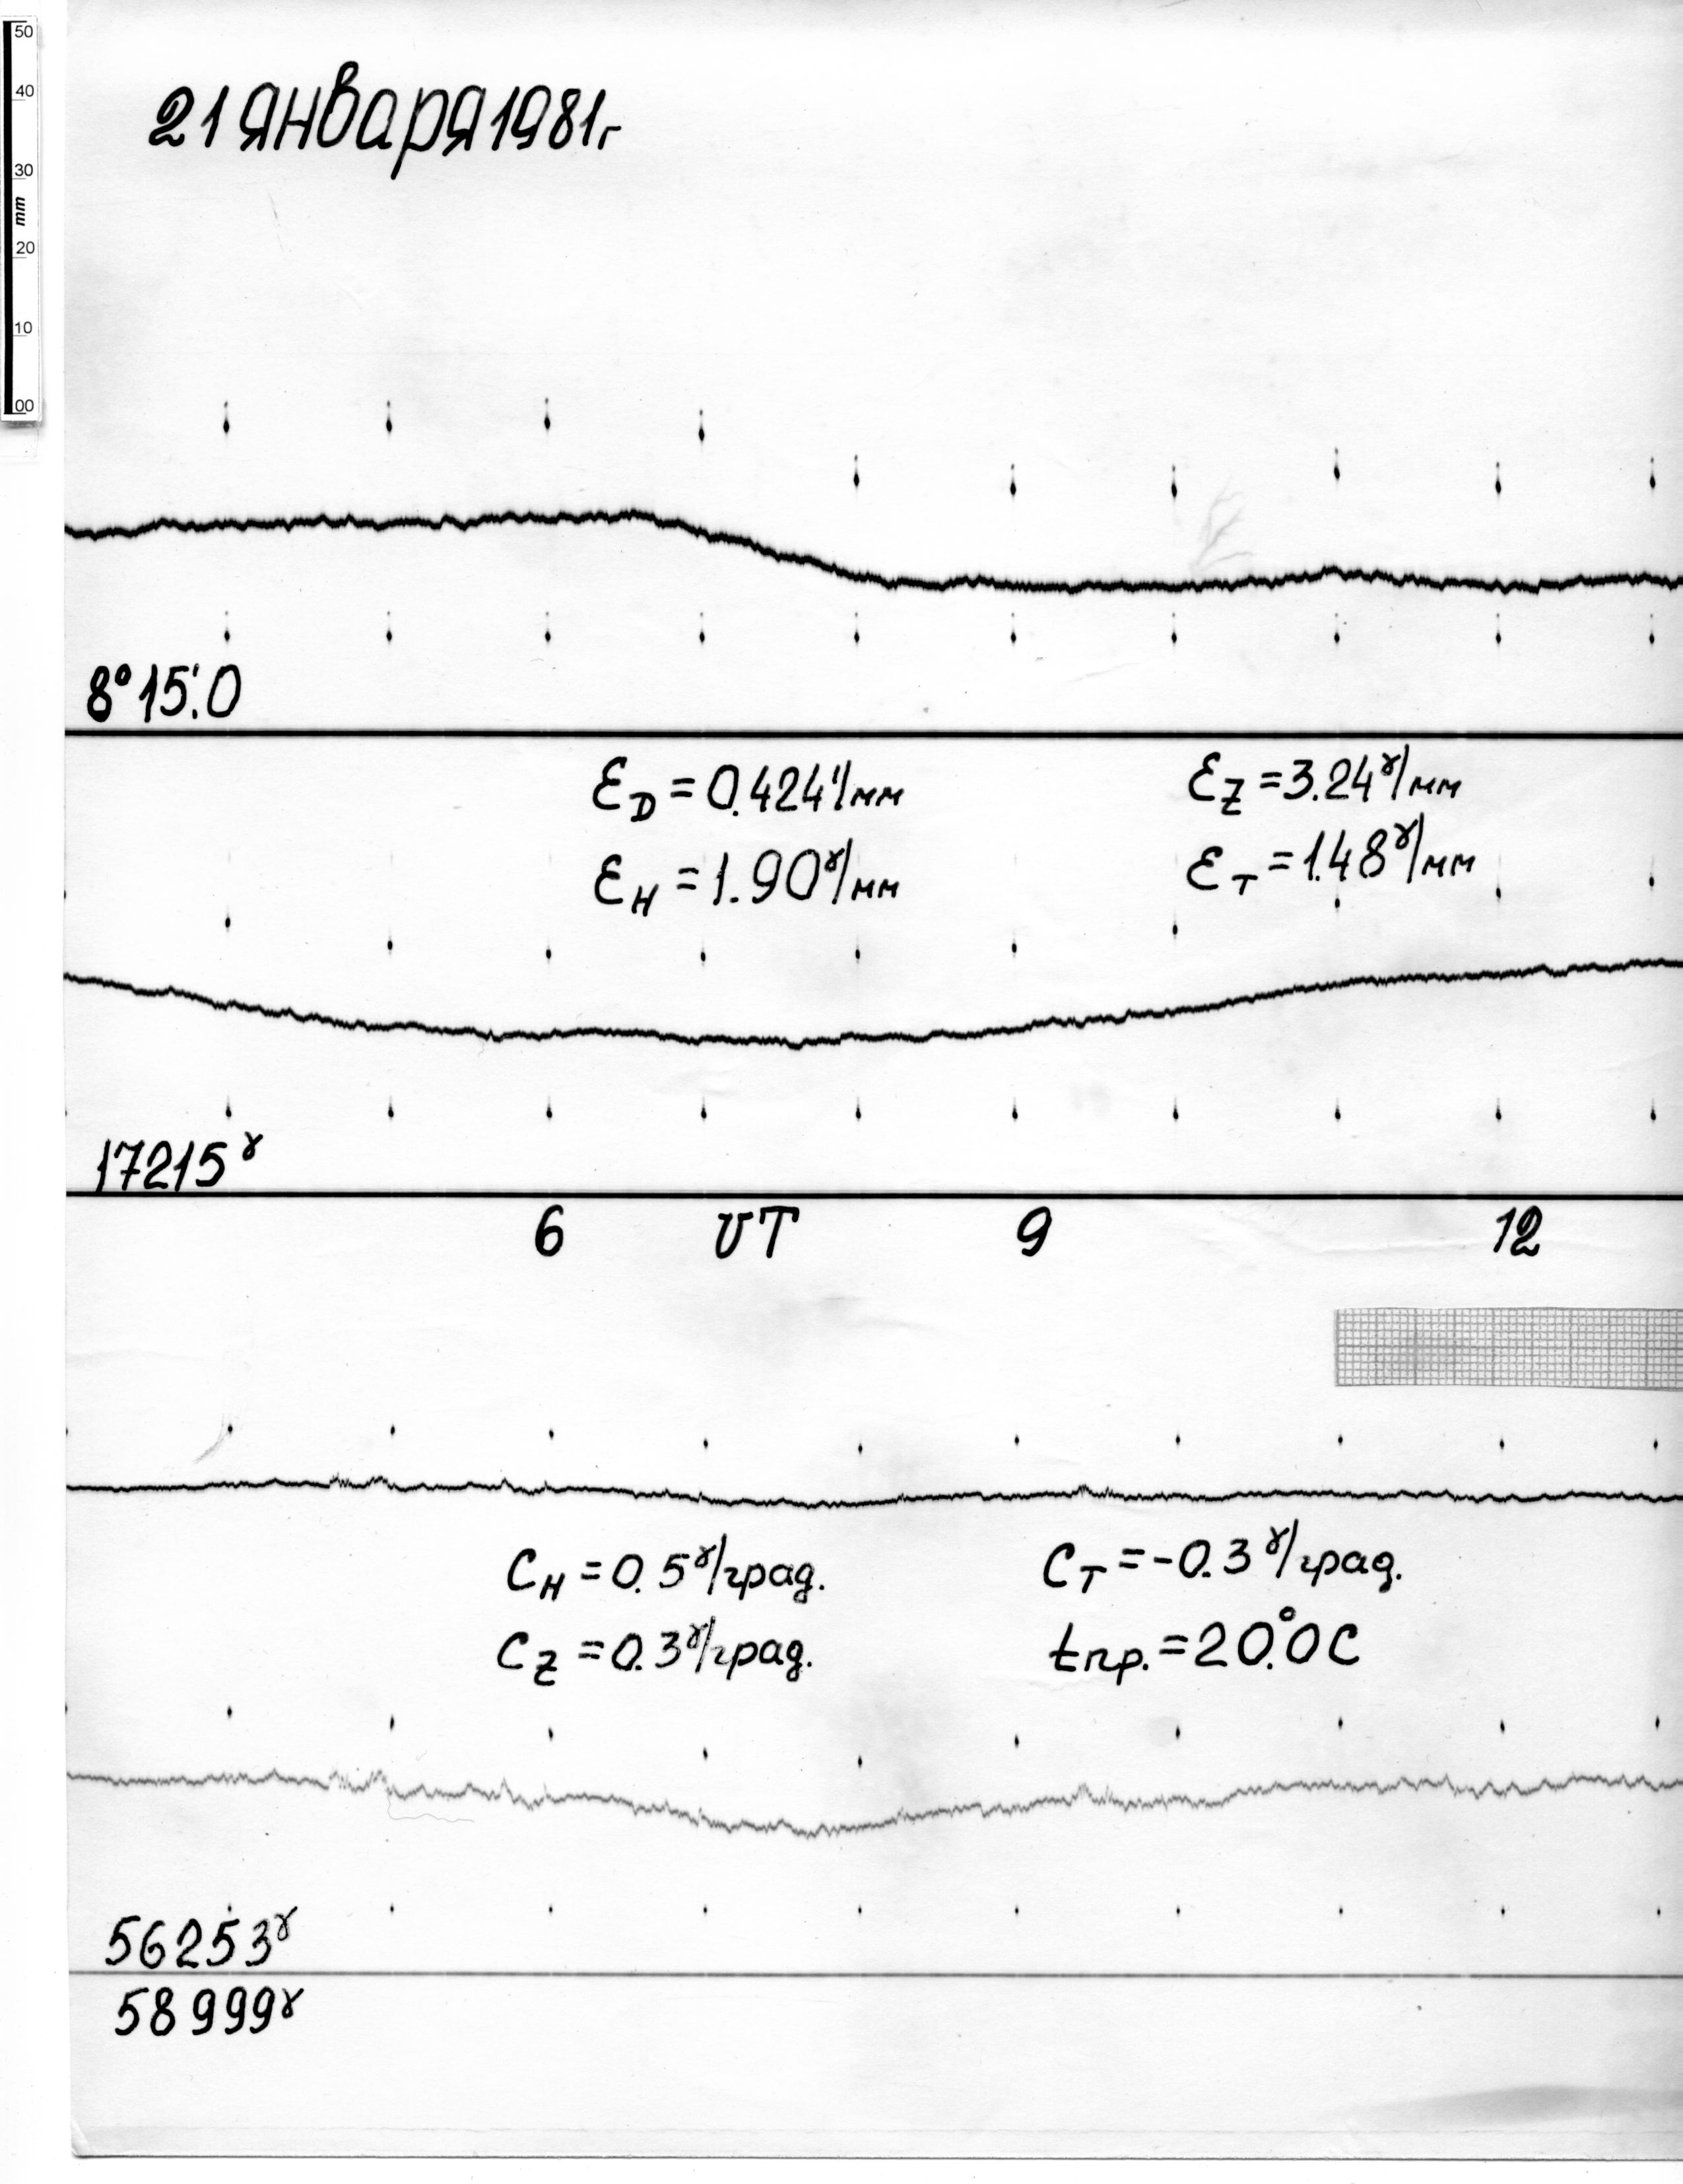 50
40
30
mm
20
10
00
21 января 1981г
8°15.'0
ε_D = 0.424'/мм
ε_Z = 3.24ˠ/мм
ε_H = 1.90ˠ/мм
ε_T = 1.48ˠ/мм
17215ˠ
6 UT 9 12
C_H = 0.5ˠ/град.
C_T = -0.3ˠ/град.
C_Z = 0.3ˠ/град.
tпр. = 20.°0C
56253ˠ
58999ˠ